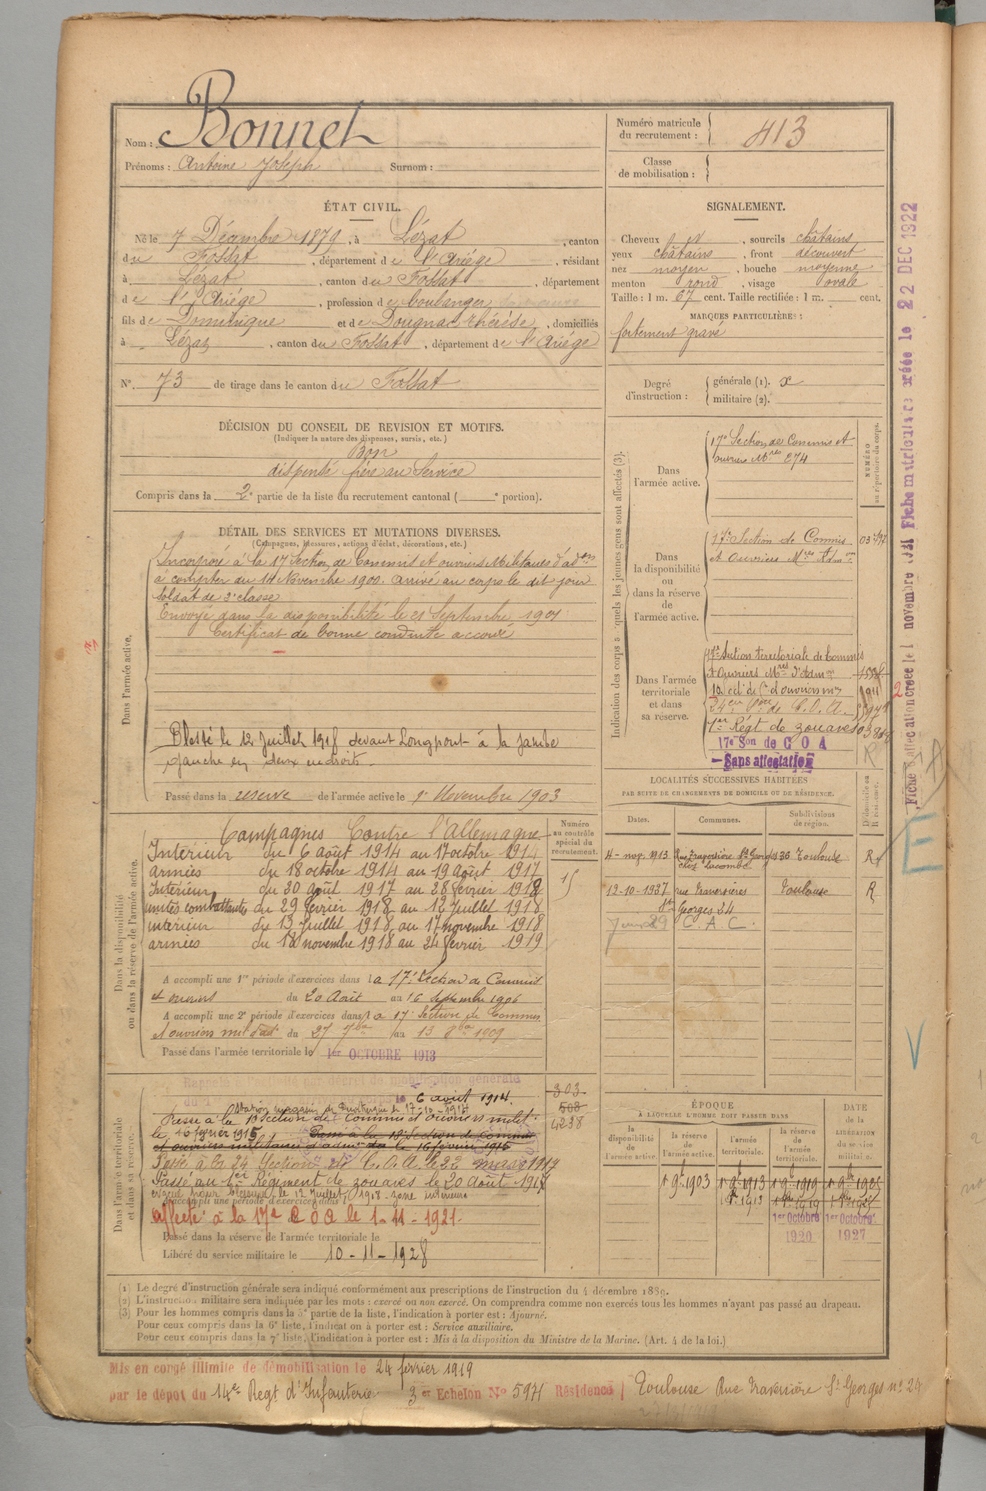 Nom : Bonnet
Prénoms : Antoine Joseph Surnom :
Numéro matricule du recrutement : 413
Classe de mobilisation :
ÉTAT CIVIL.
Né le 7 Décembre 1879, à Lézat, canton
du Fossat, département de l'Ariège, résidant
à Lézat, canton du Fossat, département
de l'Ariège, profession de boulanger
fils de Dominique et de Dougnac Thérèse, domiciliés
à Lézat, canton du Fossat, département de l'Ariège
N° 73 de tirage dans le canton du Fossat
SIGNALEMENT.
Cheveux et, sourcils châtains
yeux châtains, front découvert
nez moyen, bouche moyenne
menton rond, visage ovale
Taille : 1 m. 67 cent. Taille rectifiée : 1 m. cent.
MARQUES PARTICULIÈRES :
fortement gravé
Degré d'instruction : générale (1). x
militaire (2).
DÉCISION DU CONSEIL DE REVISION ET MOTIFS.
(Indiquer la nature des dispenses, sursis, etc.)
Bon
dispensé frère au Service
Compris dans la 2e partie de la liste du recrutement cantonal ( e portion).
DÉTAIL DES SERVICES ET MUTATIONS DIVERSES.
(Campagnes, blessures, actions d'éclat, décorations, etc.)
Dans l'armée active.
Incorporé à la 17e Section de Commis et ouvriers Militaires d'adon
à compter du 14 Novembre 1900. arrivé au corps le dit jour
soldat de 2e classe
Envoyé dans la disponibilité le 21 Septembre 1901
Certificat de bonne conduite accordé
Blessé le 12 Juillet 1918 devant Longpont à la jambe
gauche en deux endroits.
Passé dans la réserve de l'armée active le 1er Novembre 1903
Indication des corps auxquels les jeunes gens sont affectés (3).
NUMÉRO au répertoire du corps.
Dans l'armée active.
17e Section de Commis et
ouvriers Mres 274
Dans la disponibilité ou dans la réserve de l'armée active.
17e Section de Commis
et Ouvriers Mres d'Adm on
Dans l'armée territoriale et dans sa réserve.
17e Section territoriale de Commis
et Ouvriers Mres d'Adm
24e on de C.O.A.
1er Régt de zouaves
17e Son de C O A
Sans affectation
Dans la disponibilité ou dans la réserve de l'armée active.
Numéro au contrôle spécial du recrutement.
15
Campagnes Contre l'Allemagne
Intérieur du 6 août 1914 au 17 octobre 1914
armées du 18 octobre 1914 au 19 août 1917
Intérieur du 20 août 1917 au 28 février 1918
unités combattantes du 29 février 1918 au 12 Juillet 1918
intérieur du 13 Juillet 1918 au 17 novembre 1918
armées du 18 novembre 1918 au 24 février 1919
A accompli une 1re période d'exercices dans la 17e Section de Commis
et ouvriers du 20 Août au 16 Septembre 1906
A accompli une 2e période d'exercices dans la 17e Section de Commis
et ouvriers mil d'ad on du 27 7bre au 13 8bre 1909
Passé dans l'armée territoriale le 1er OCTOBRE 1913
LOCALITÉS SUCCESSIVES HABITÉES
PAR SUITE DE CHANGEMENTS DE DOMICILE OU DE RÉSIDENCE.
Dates. Communes. Subdivisions de région.
4 - nov. 1913 Rue Traversière St Georges 36 Toulouse R
chez Lacombe
12-10-1927 rue Traversières Toulouse R
St Georges 24
C. A. C.
Dans l'armée territoriale et dans sa réserve.
Rappelé à l'activité par décret de mobilisation générale
6 août 1914.
Passé à la Section de Commis et ouvriers milit.
le 16 février 1915 Passé à la 18e Section de Commis
et ouvriers militaires d'adm on le 16 février 1915
Passé à la 24 Section de C.O.A. le 22 mars 1917
Passé au 1er Régiment de zouaves le 20 août 1917
évacué pour blessure le 12 Juillet 1918 zone intérieure
A accompli une période d'exercices dans l
affecté à la 17e C O A le 1-11-1921
Passé dans la réserve de l'armée territoriale le
Libéré du service militaire le 10-11-1928
303
508
4238
ÉPOQUE
A LAQUELLE L'HOMME DOIT PASSER DANS
la disponibilité de l'armée active.
la réserve de l'armée active.
l'armée territoriale.
la réserve de l'armée territoriale.
DATE DE LA LIBÉRATION du service militaire.
1er 9bre 1903
1er 8bre 1913
1er Octobre 1920
1er Octobre 1927
(1) Le degré d'instruction générale sera indiqué conformément aux prescriptions de l'instruction du 4 décembre 1889.
(2) L'instruction militaire sera indiquée par les mots : exercé ou non exercé. On comprendra comme non exercés tous les hommes n'ayant pas passé au drapeau.
(3) Pour les hommes compris dans la 5e partie de la liste, l'indication à porter est : Ajourné.
Pour ceux compris dans la 6e liste, l'indication à porter est : Service auxiliaire.
Pour ceux compris dans la 7e liste, l'indication à porter est : Mis à la disposition du Ministre de la Marine. (Art. 4 de la loi.)
Mis en congé illimité de démobilisation le 24 février 1919
par le dépôt du 14e Regt d'Infanterie 3er Echelon No 5971 Résidence Toulouse Rue Traversière St Georges no 24